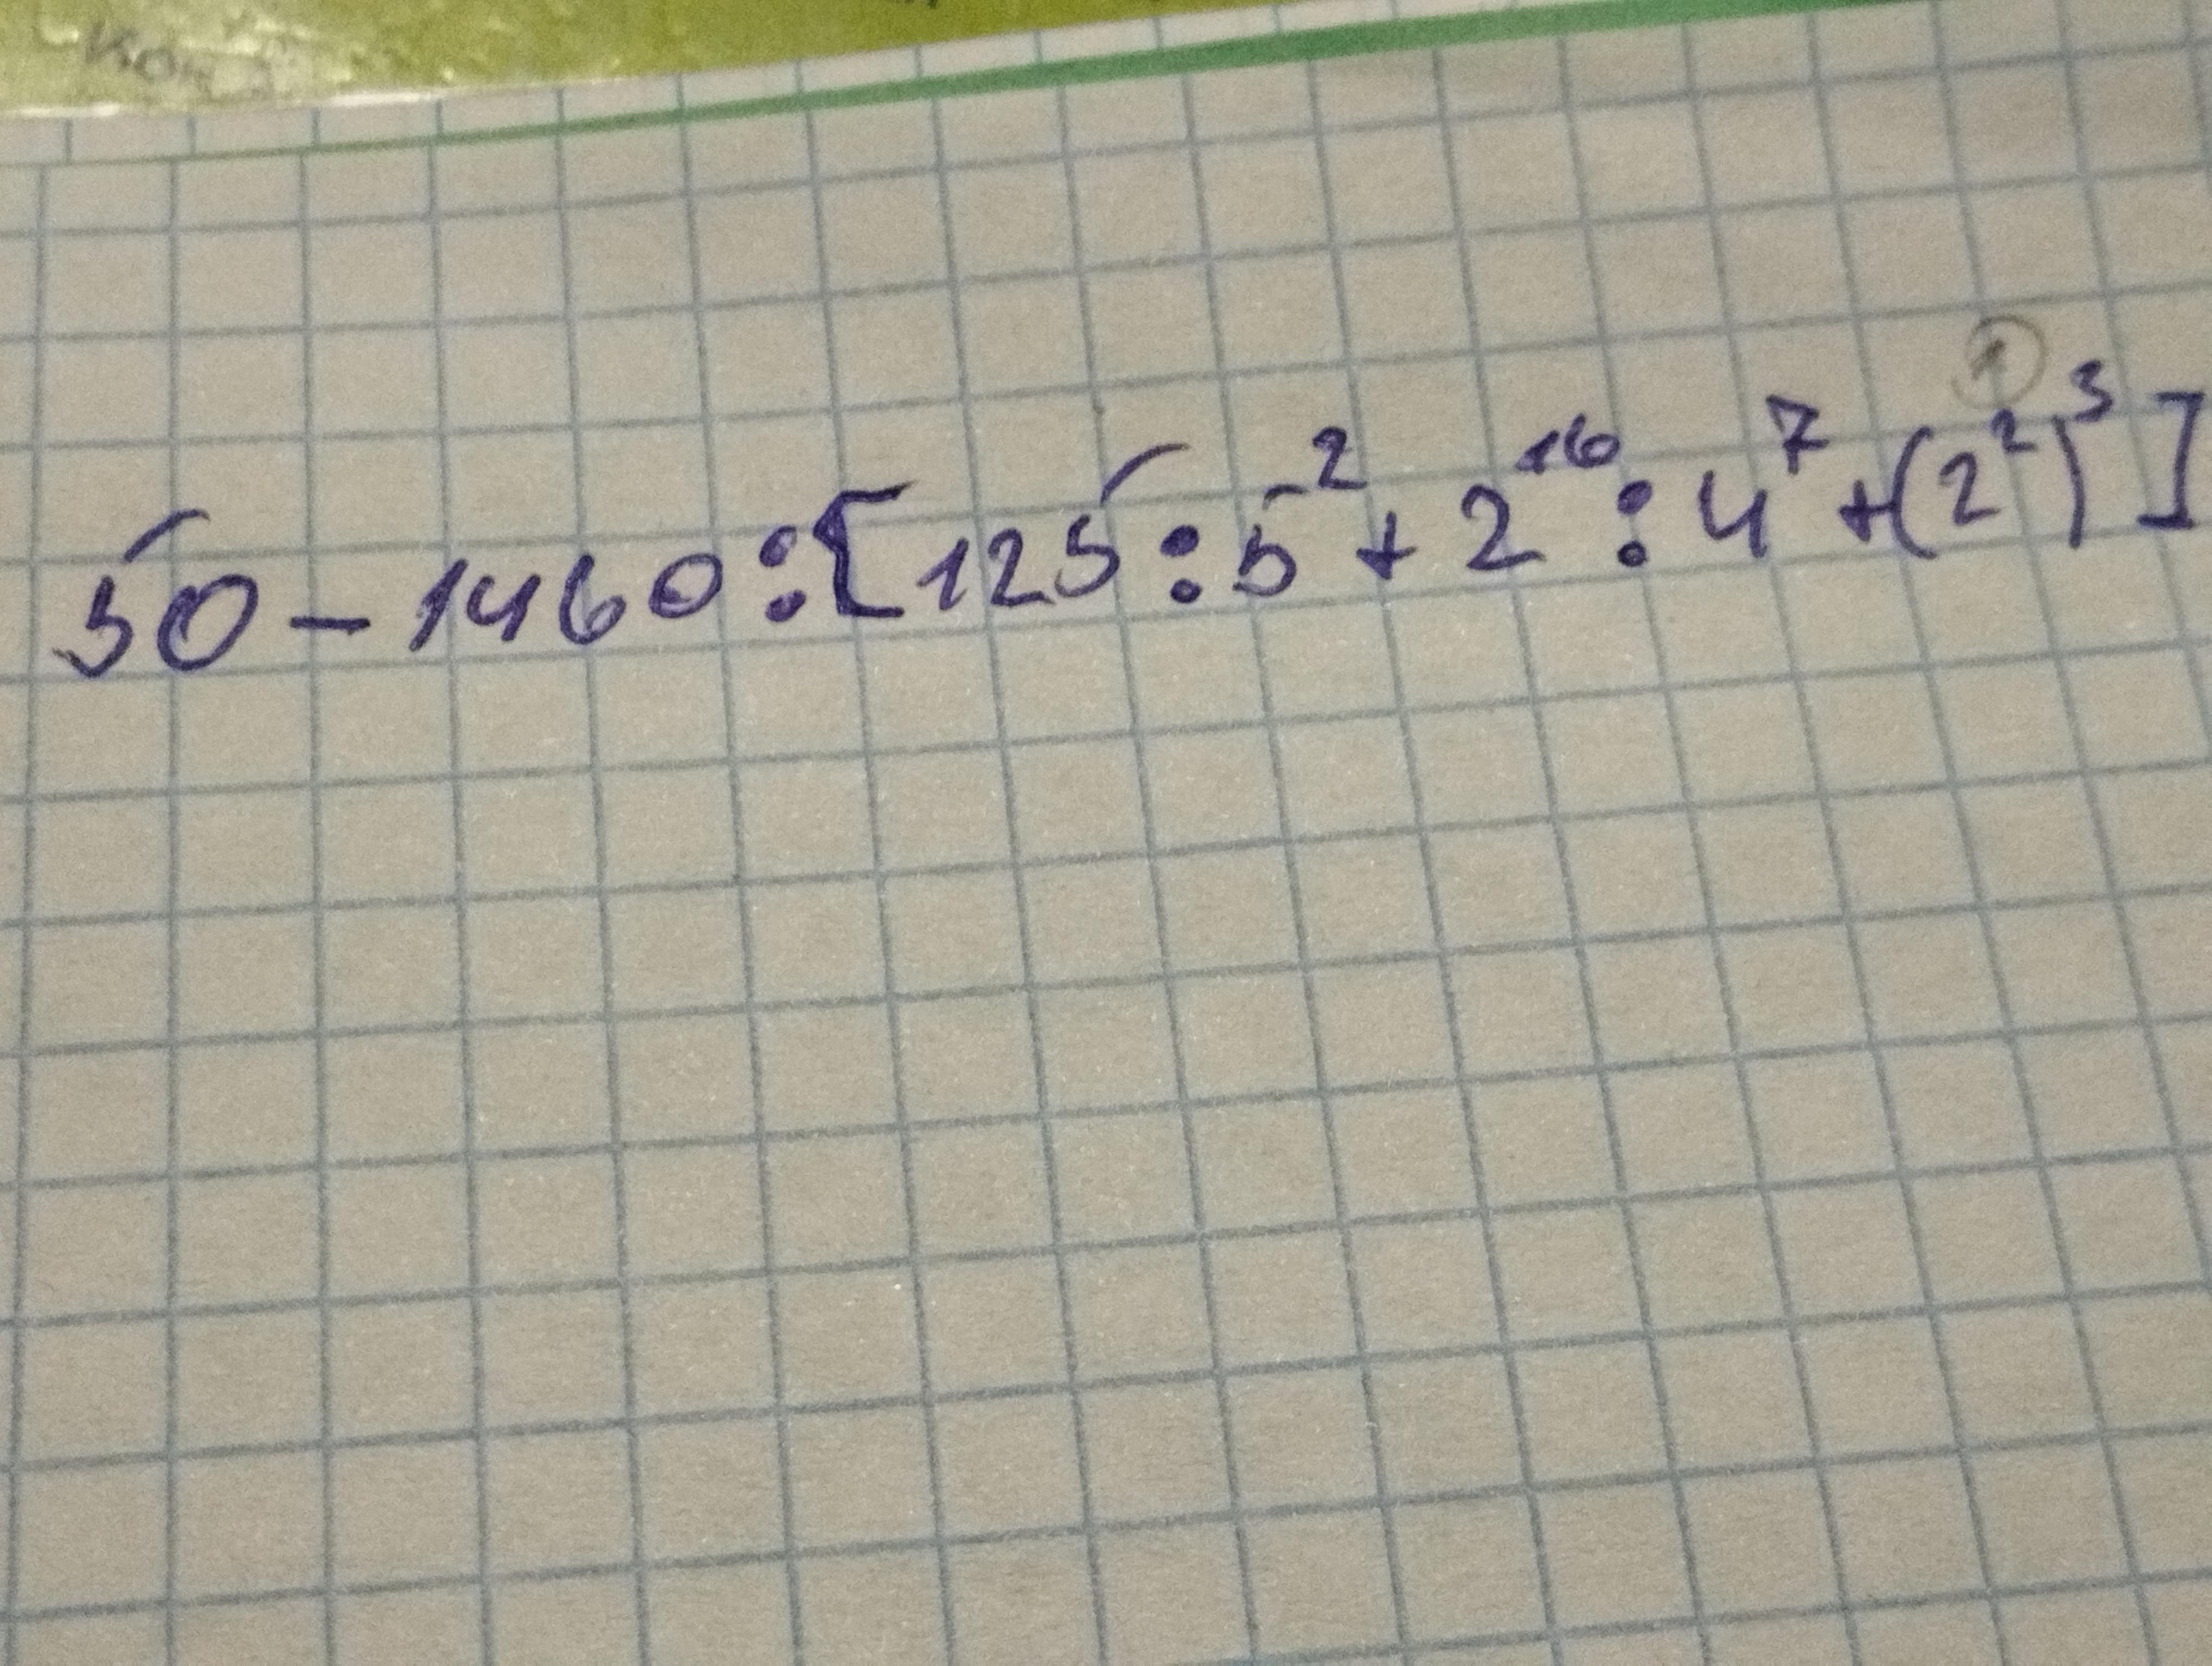 50 - 1460 : [125 : 5² + 2¹⁶ : 4⁷ + (2²)³]